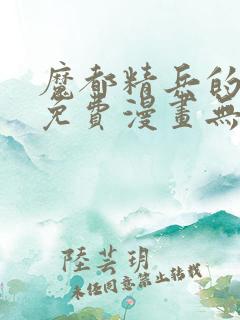 魔都精兵的
免費漫畫無
陸芸玥
未經同意禁止轉載